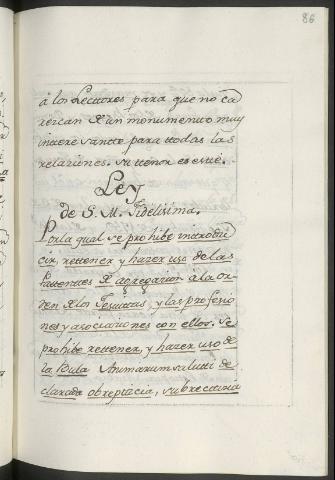 86
à los Lectores para que no ca
rezcan de un monumento muy
interesante para todas las
relaciones. su tenor es este.
Ley
de S. M. Fidelisima.
Por la qual se prohibe introdu
cir, retener y hazer uso de las
Patentes de agregacion à la or
den de los Jesuitas, y las profesio
nes y asociaciones con ellos. Se
prohibe retener, y hazer uso de
la Bula Animarum saluti de
clarada obrepticia, subrecticia